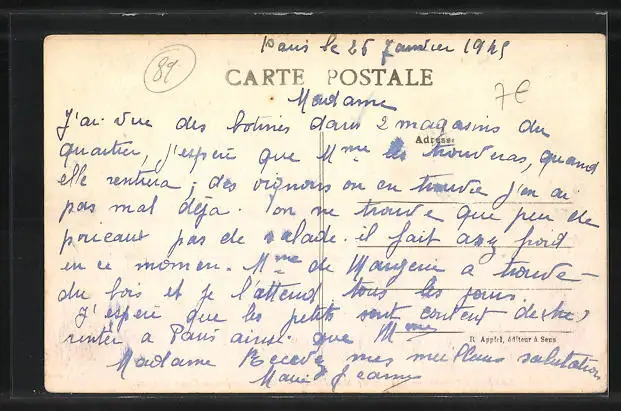 Paris le 26 Janvier 1945
89
CARTE POSTALE
7€
Madame
J'ai vue des botines dans 2 magasins du
Adresse
quartier, j'espère que Mme les trouveras, quand
elle rentrera ; des oignons on en trouve j'en ai
pas mal déja. l'on ne trouve que peu de
poireaux pas de salade. il fait assez froid
en ce momen. Mme de a trouve
du bois et je l'attend tous les jours.
J'espère que les petits sont content de
rentér a Paris ainsi que Mme
R. Appfel, éditeur à Sens
Madame Recevez mes meilleurs salutations
Marie Jeanne